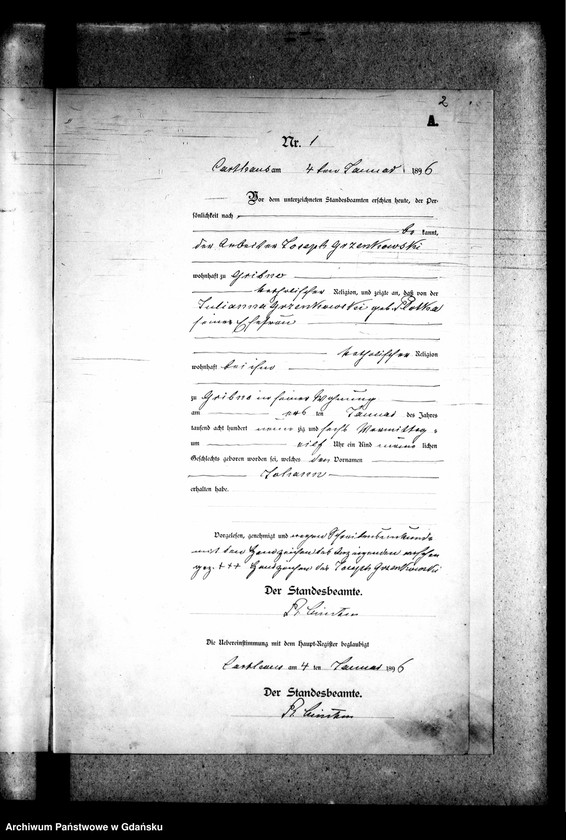 2
A.
Nr. 1
Carthaus am 4 ten Januar 1896
Vor dem unterzeichneten Standesbeamten erschien heute, der Per-
sönlichkeit nach
be kannt,
der Arbeiter Joseph Grzenkowski
wohnhaft zu Gribno
katholischer Religion, und zeigte an, daß von der
Julianna Grzenkowski geb. Plotka
seiner Ehefrau
katholischer Religion
wohnhaft bei ihm
zu Gribno in seiner Wohnung
am ten Januar des Jahres
tausend acht hundert neun zig und sechs Vormittags
um elf Uhr ein Kind männ lichen
Geschlechts geboren worden sei, welches den Vornamen
Johann
erhalten habe.
Vorgelesen, genehmigt und wegen Schreibensunkunde
mit dem Handzeichen des Anzeigenden versehen
gez. +++ Handzeichen des Joseph Grzenkowski
Der Standesbeamte.
Die Uebereinstimmung mit dem Haupt-Register beglaubigt
Carthaus am 4 ten Januar 1896
Der Standesbeamte.
Archiwum Państwowe w Gdańsku